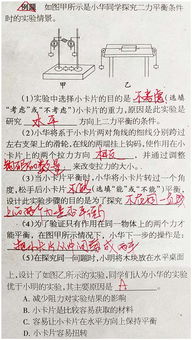 例题 如图甲所示是小华同学探究二力平衡条件
时的实验情景.
甲 乙
(1)实验中选择小卡片的目的是 不考虑 (选填
"考虑"或"不考虑")小卡片的重力,原因是此实验是
研究 水平 方向上二力平衡的条件.
(2)小华将系于小卡片两对角线的细线分别跨过
左右支架上的滑轮,在线的两端挂上钩码,使作用在小
卡片上的两个拉力方向 相反 ,并通过调整
钩码的数量 来改变拉力的大小.
(3)当小卡片平衡时,小华将小卡片转过一个角
度,松手后小卡片 不能 (选填"能"或"不能")平衡,
设计此实验步骤的目的是为了探究 不在同一
(4)为了验证只有作用在同一物体上的两个力才
能平衡,在图甲所示情况下,小华下一步的操作是:
把小卡片从中间剪成两半
(5)在探究同一问题时,小明将木块放在水平桌面
上,设计了如图乙所示的实验,同学们认为小华的实验
优于小明的实验,其主要原因是 A
A. 减少阻力对实验结果的影响
B. 小卡片是比较容易获取的材料
C. 容易让小卡片在水平方向上保持平衡
D. 小卡片容易扭转